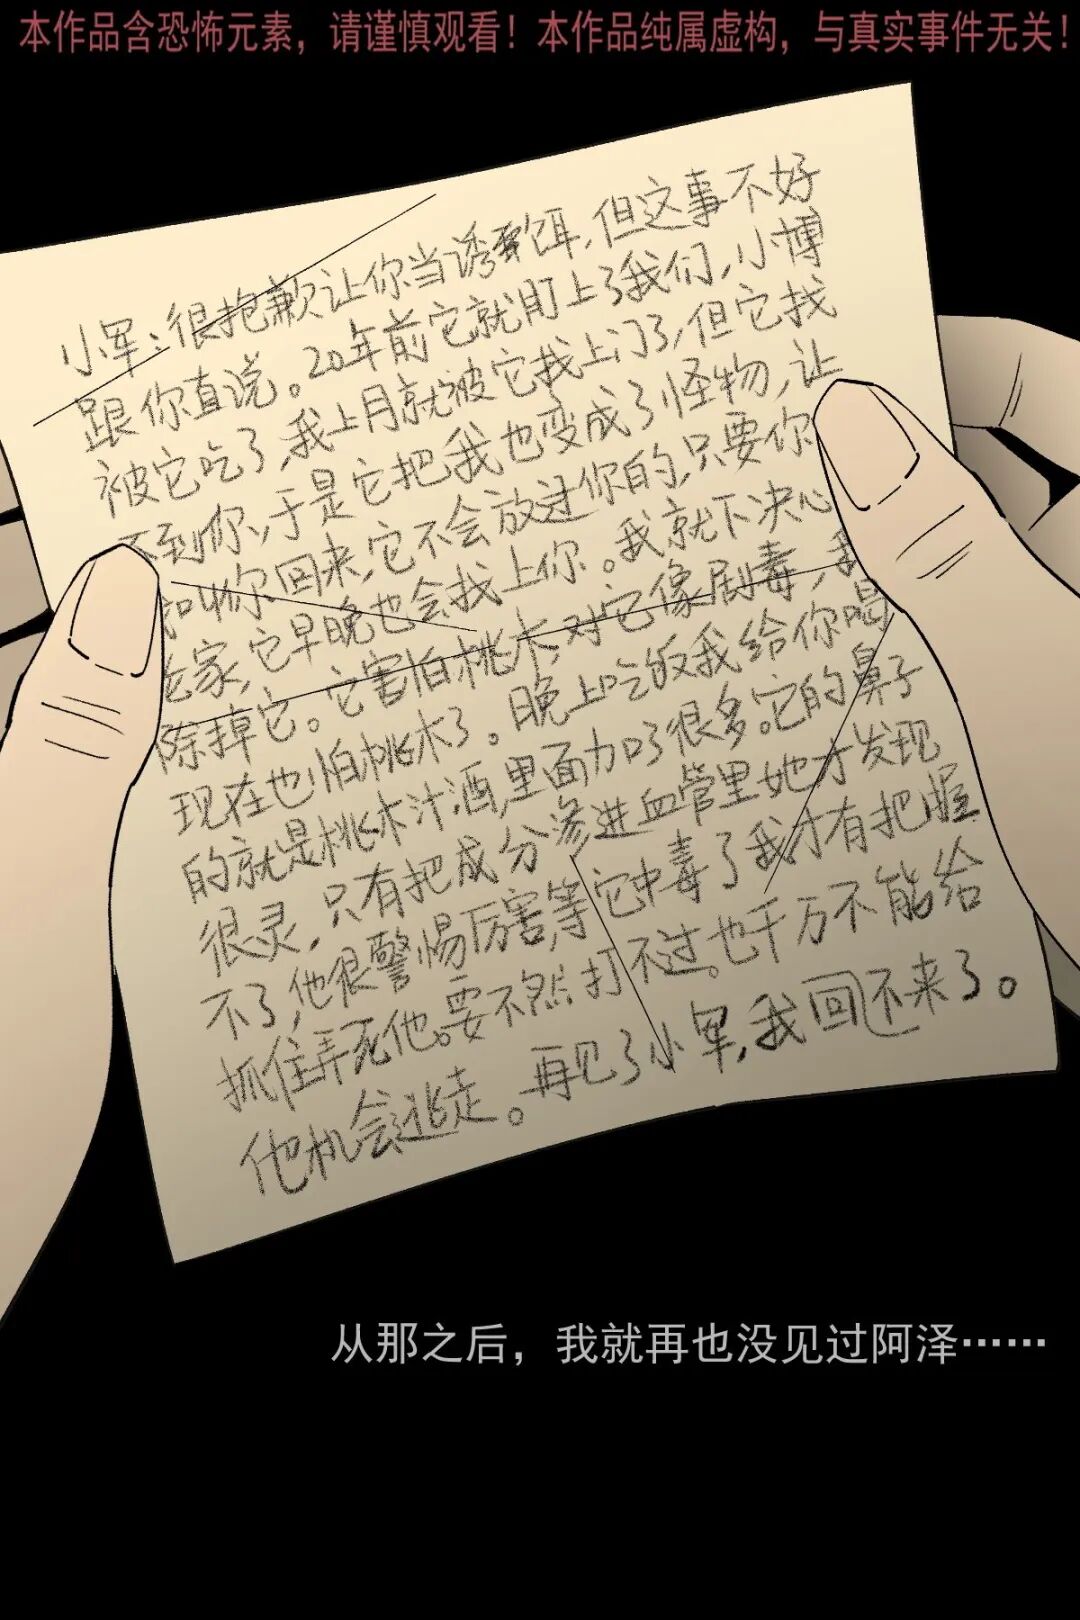 本作品含恐怖元素，请谨慎观看！本作品纯属虚构，与真实事件无关！
小军：很抱歉让你当诱饵，但这事不好
跟你直说。20年前它就盯上了我们，小博
被它吃了，我上月就被它找上门了，但它找
不到你，于是它把我也变成了怪物，让
我叫你回来，它不会放过你的，只要你
老家，它早晚也会找上你。我就下决心
除掉它。它害怕桃木，对它像剧毒，我
现在也怕桃木了。晚上吃饭我给你喝
的就是桃木汁酒，里面加了很多。它的鼻子
很灵，只有把成分渗进血管里她才发现
不了，他很警惕厉害，等它中毒了我才有把握
抓住弄死他。要不然打不过。也千万不能给
他机会逃走。再见了小军，我回不来了。
从那之后，我就再也没见过阿泽……